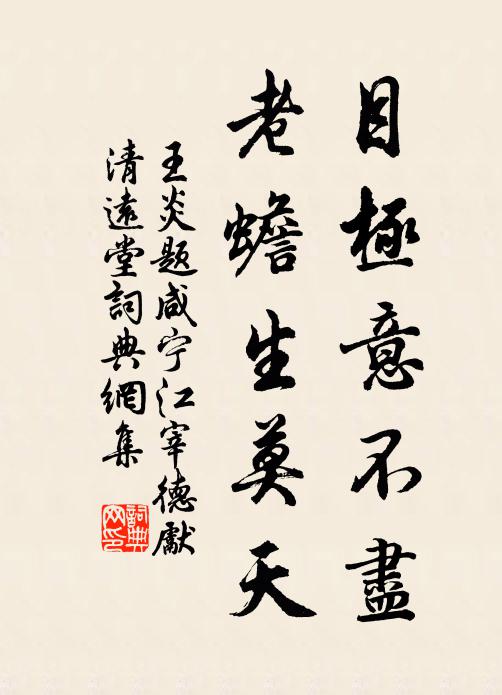 目極意不盡
老蟾生莫天
王炎題咸宁江宰德獻
清遠堂詞典網集
詞典
网印